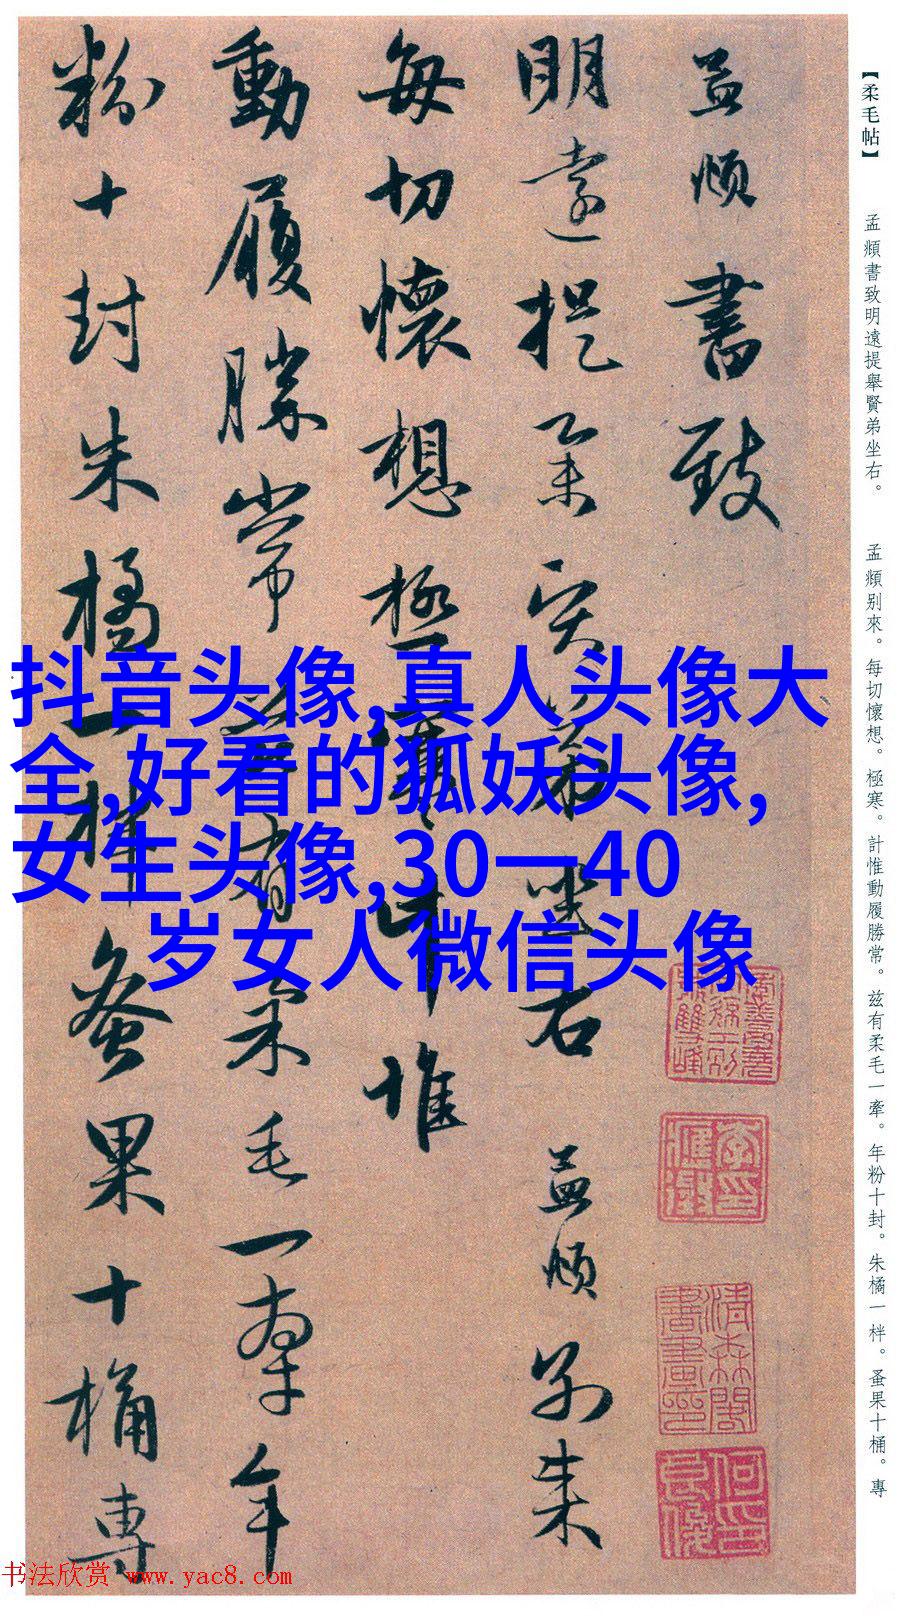 【柔毛帖】
孟頫書致明遠提舉賢弟坐右。
孟頫別來。每切懷想。極寒。計惟動履勝常。兹有柔毛一牽。年粉十封。朱橘一柈。蚤果十桶。專
孟頫書致
明遠提舉賢弟坐右 孟頫別來
每切懷想極寒計惟
動履勝常兹有柔毛一牽年
粉十封朱橘一柈蚤果十桶專
抖音头像,真人头像大
全,好看的狐妖头像,
女生头像,30一40
岁女人微信头像
书法欣赏 www.yac8.com